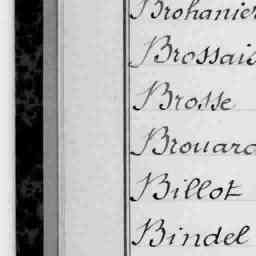 Brohanier
Brossais
Brosse
Brouard
Billot
Bindel